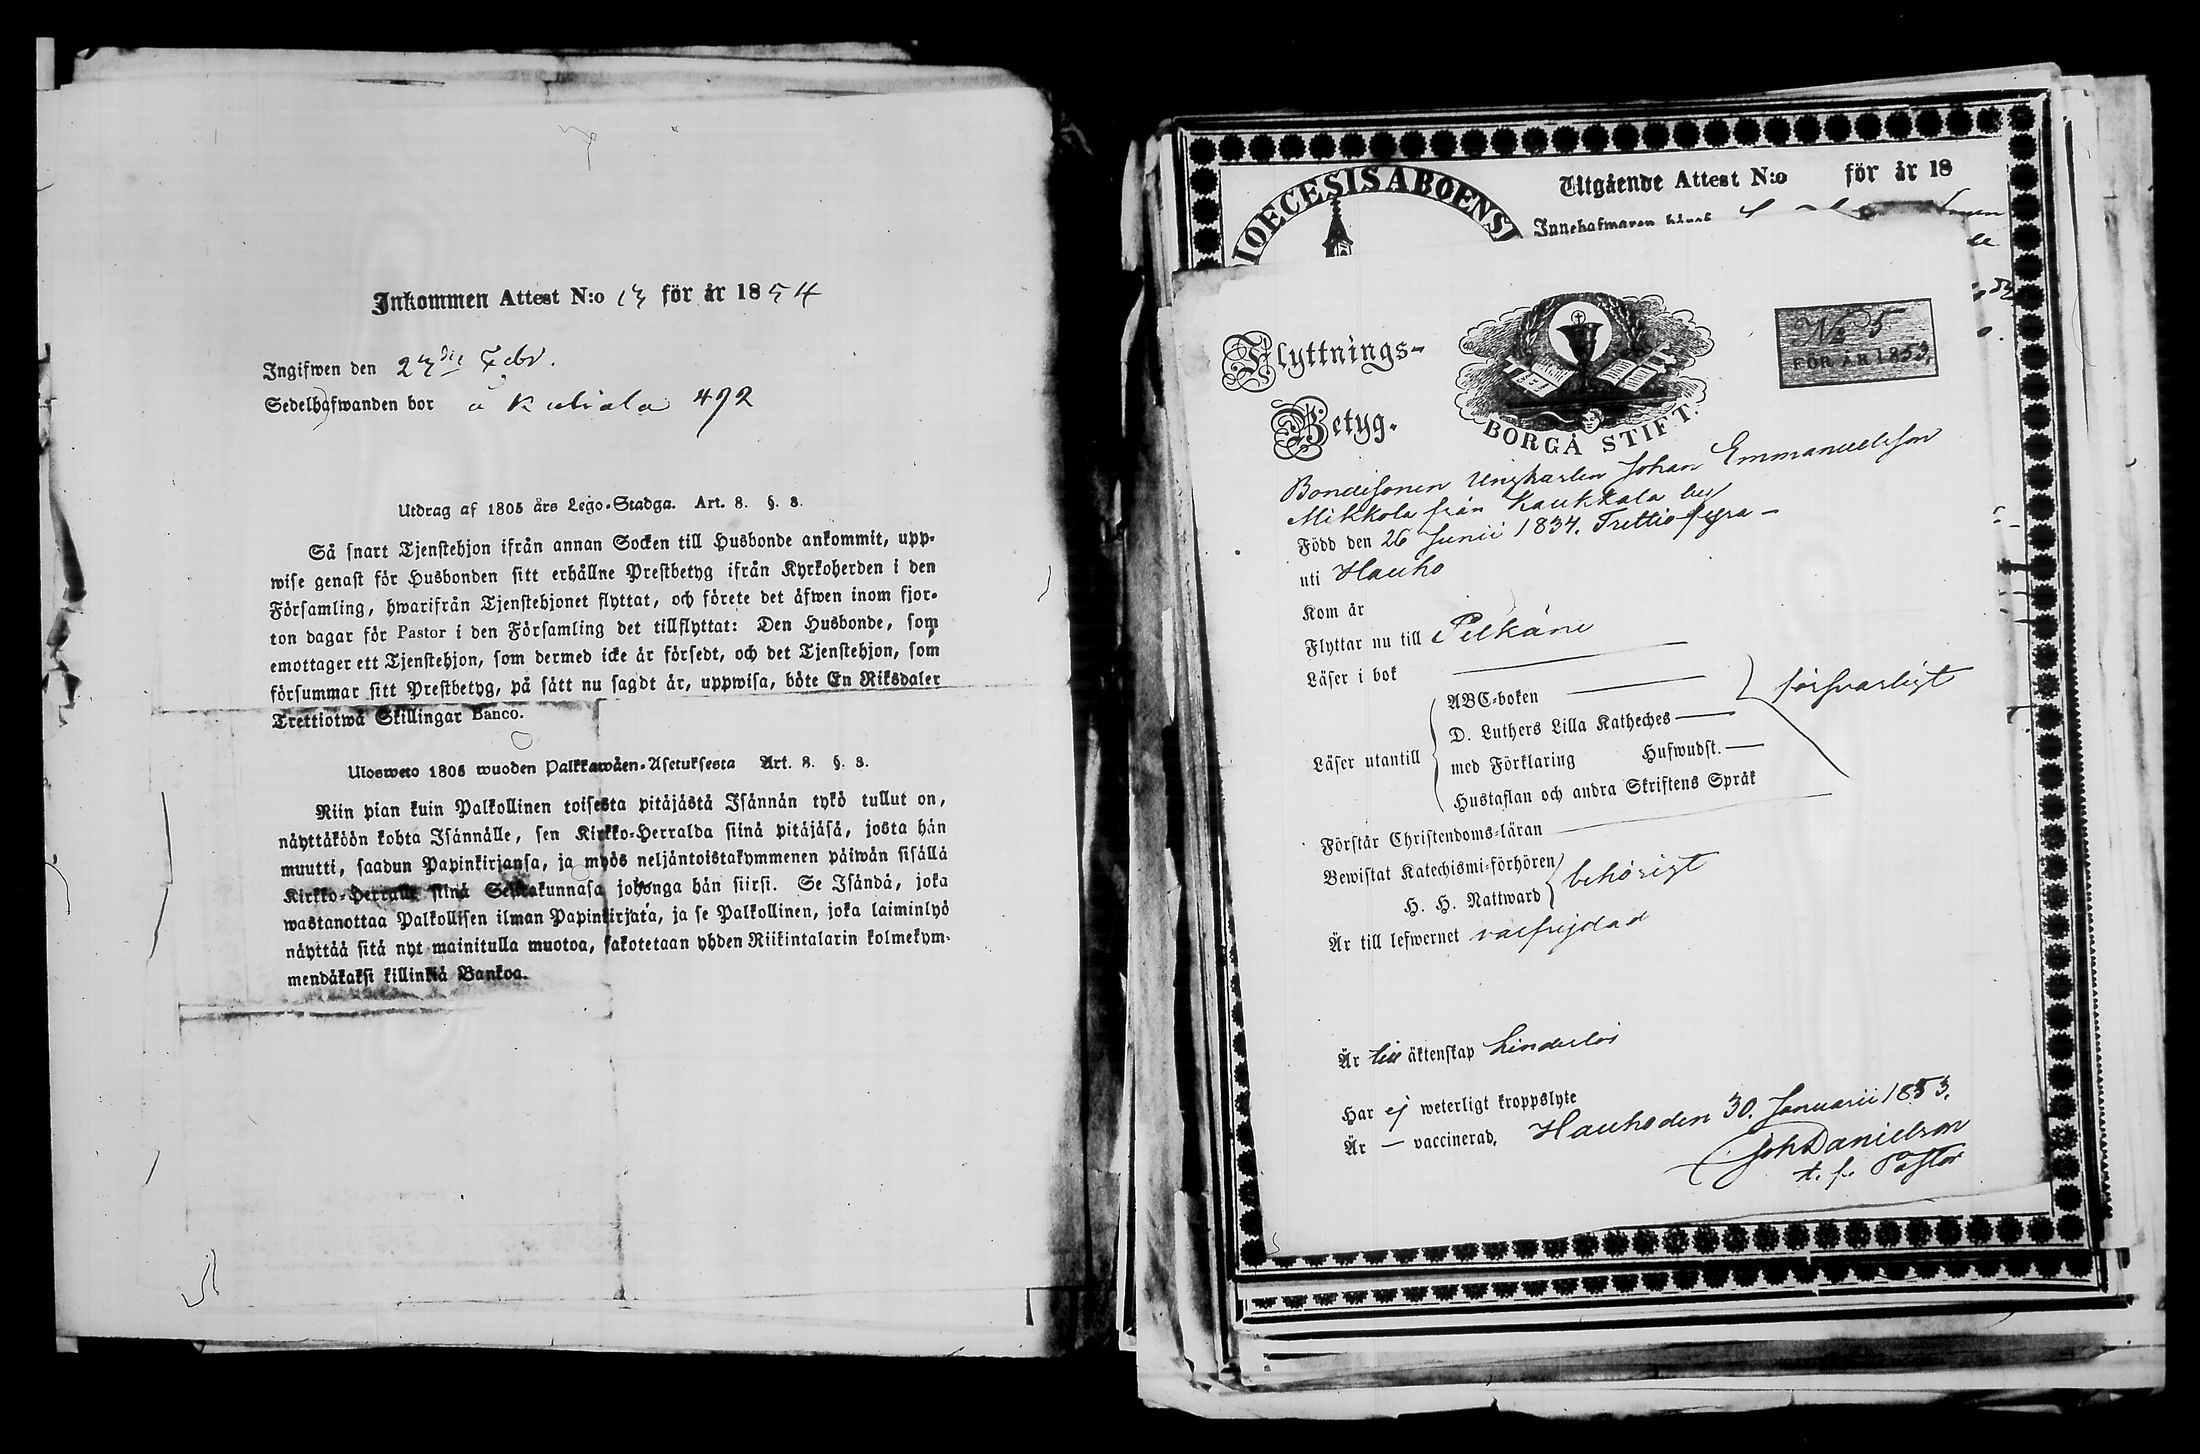 Inkommen Attest N:o 13 för år 1854
Ingifwen den 27die Febr.
Sedelhafwanden bor å Kubiala 492
Utdrag af 1805 års Lego-Stadga. Art. 8. §. 3.
Så snart Tjenstehjon ifrån annan Socken till Husbonde ankommit, upp-
wise genast för Husbonden sitt erhållne Prestbetyg ifrån Kyrkoherden i den
Församling, hwarifrån Tjenstehjonet flyttat, och förete det äfwen inom fjor-
ton dagar för Pastor i den Församling det tillflyttat: Den Husbonde, som
emottager ett Tjenstehjon, som dermed icke är försedt, och det Tjenstehjon, som
försummar sitt Prestbetyg, på sätt nu sagdt är, uppwisa, böte En Riksdaler
Trettiotwå Skillingar Banco.
Ulosweto 1805 wuoden Palkkawäen-Asetuksesta Art. 8. §. 3.
Niin pian kuin Palkollinen toisesta pitäjästä Isännän tykö tullut on,
näyttäköön kohta Isännälle, sen Kirkko-Herralda siinä pitäjäsä, josta hän
muutti, saadun Papinkirjansa, ja myös neljäntoistakymmenen päiwän sisällä
Kirkko-Herralle siinä Seurakunnasa johonga hän siirsi. Se Isändä, joka
wastanottaa Palkollisen ilman Papinkirjata, ja se Palkollinen, joka laiminlyö
näyttää sitä nyt mainitulla muotoa, sakotetaan yhden Riikintalarin kolmekym-
mendäkaksi killinkiä Bankoa.
DIOECESIS ABOENSI
Utgående Attest N:o för år 18
Innehafwaren
Flyttnings-
Betyg.
BORGÅ STIFT.
No 5
FÖR ÅR 1853,
Bondesonen Ungkarlen Johan Emmanuelsson
Mikkola från Kaukkala by
Född den 26 Junii 1834. Trettiofyra —
uti Hauho
Kom år
Flyttar nu till Pelkäne
Läser i bok
Läser utantill
ABC-boken
D. Luthers Lilla Katheches
med Förklaring Hufwudst.
Hustaflan och andra Skriftens Språk
försvarligt
Förstår Christendoms-läran
Bewistat Katechismi-förhören
H. H. Nattward
behörigt
Är till lefwernet välfrejdad
Är till äktenskap hinderlös
Har ej weterligt kroppslyte
Är — vaccinerad,
Hauho den 30. Januarii 1853.
Joh Danielson
t. f. Pastor